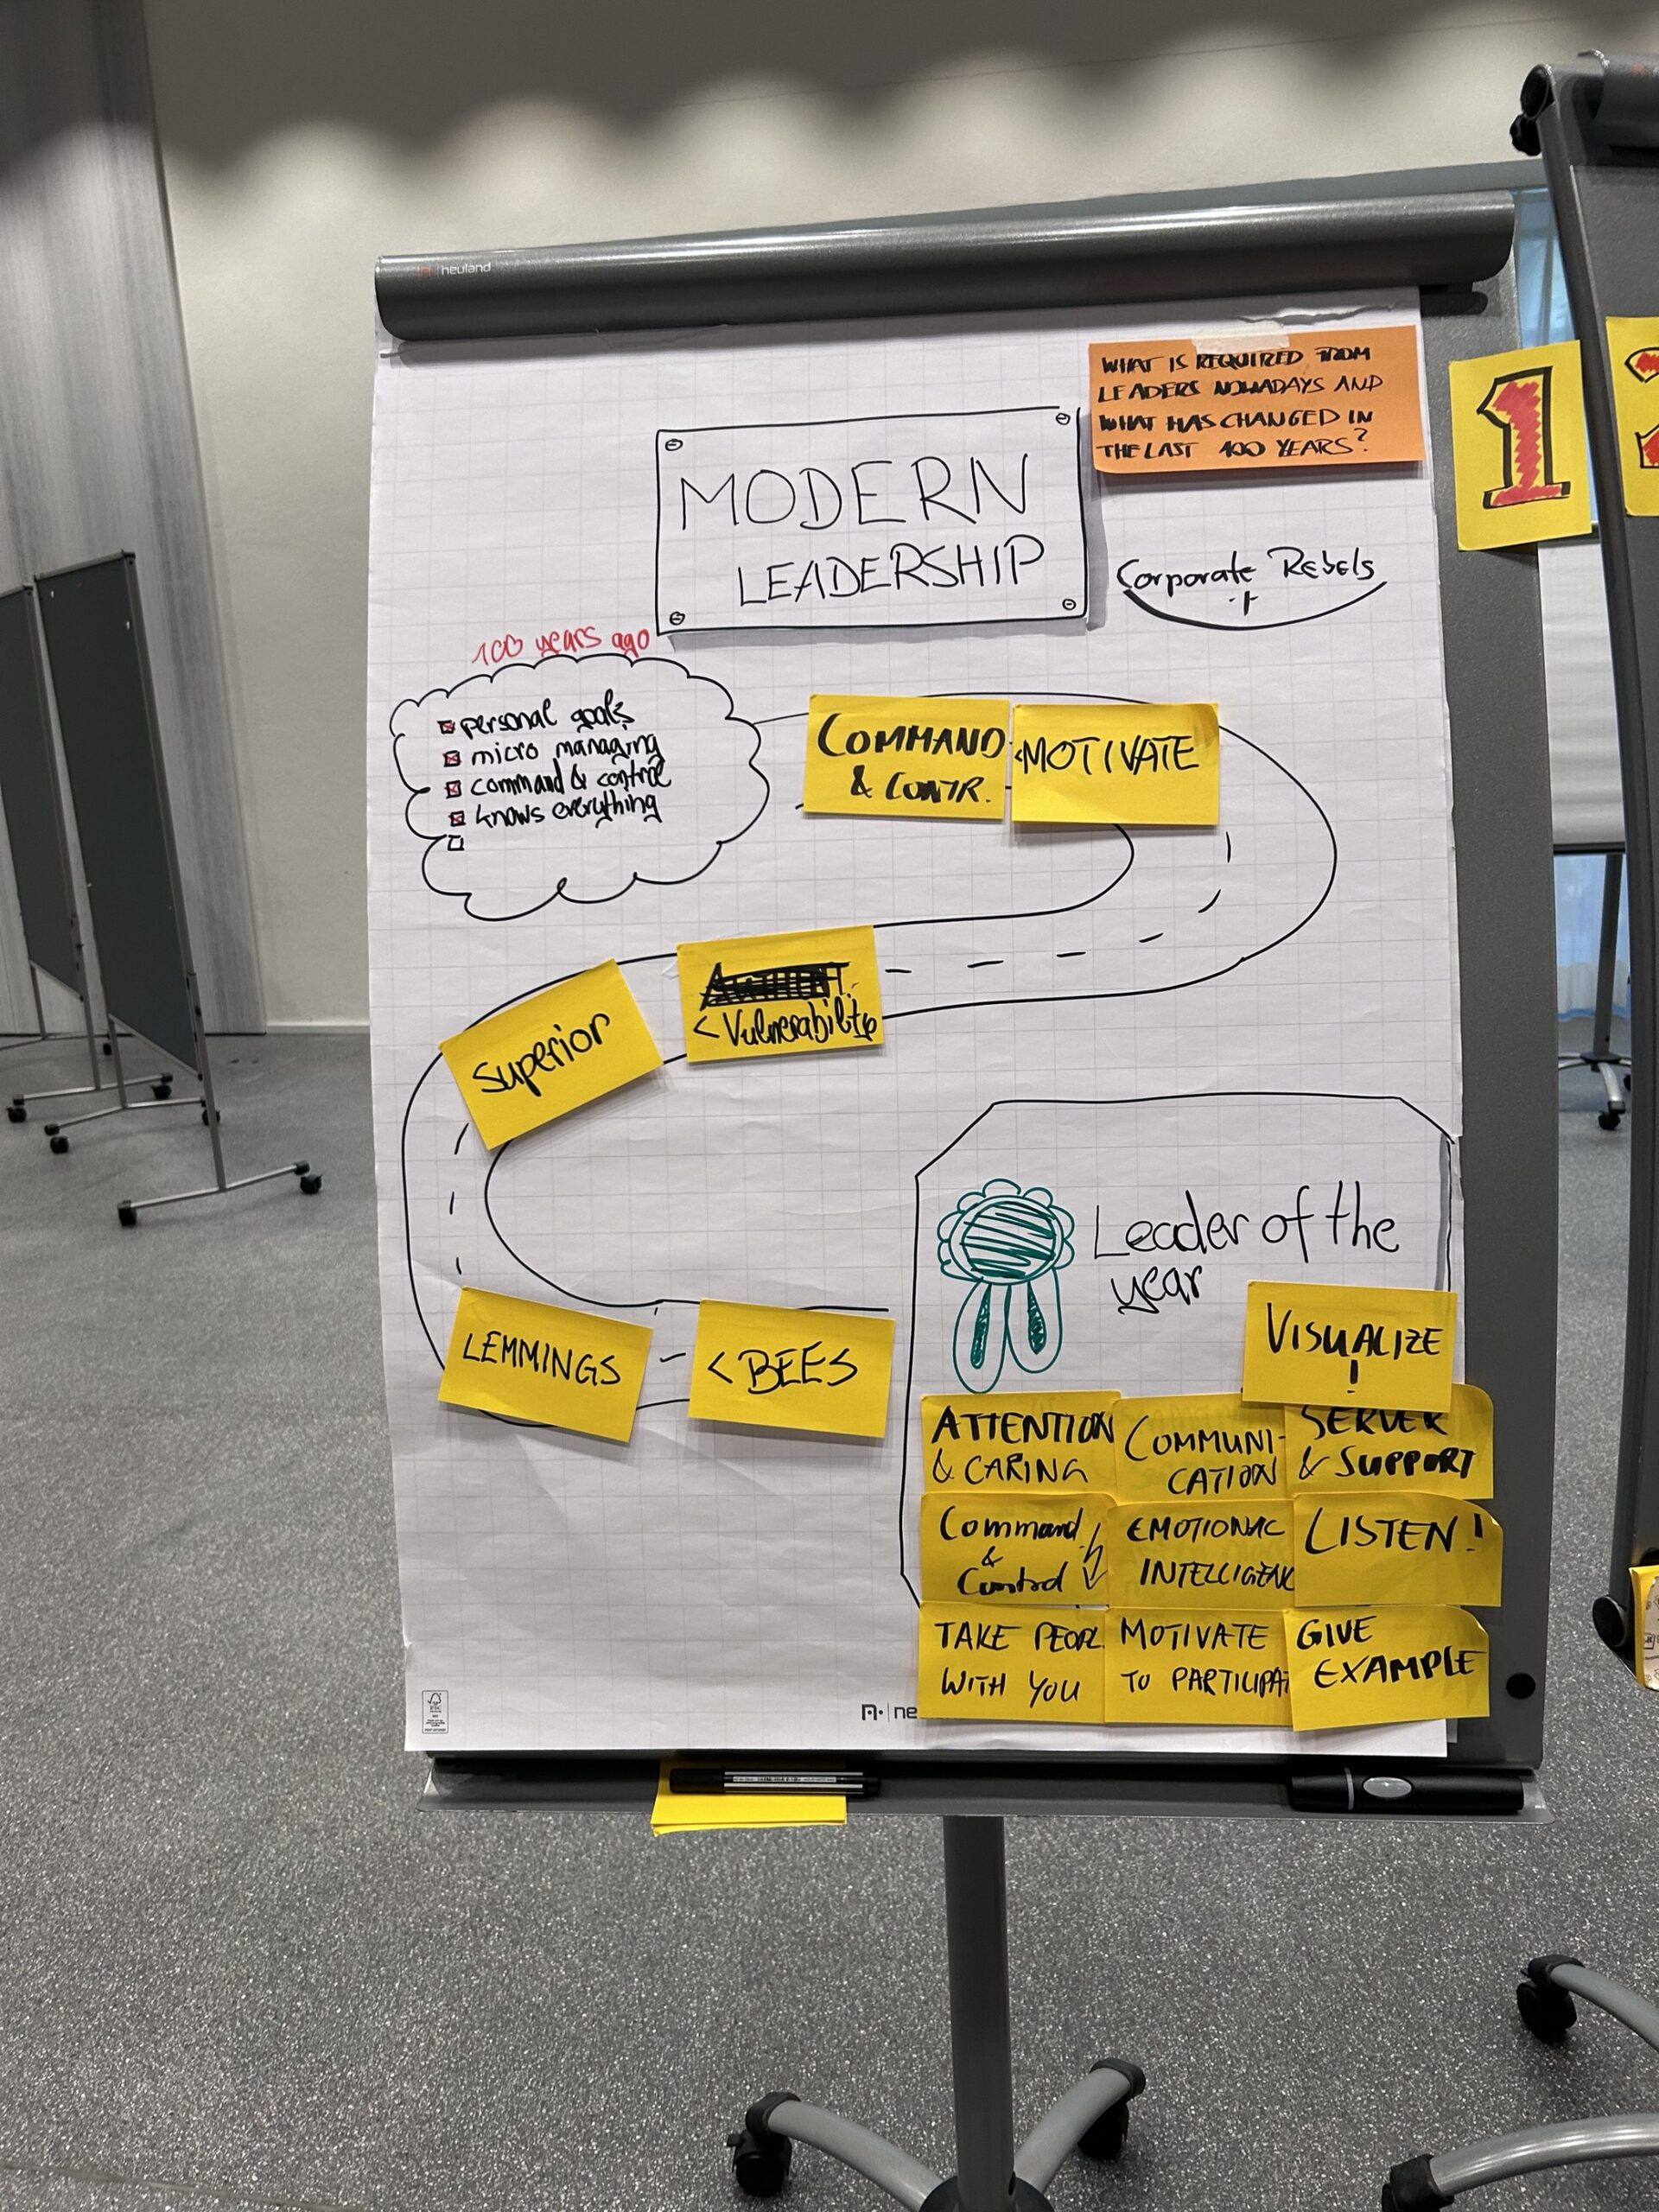 neuland
WHAT IS REQUIRED FROM
LEADERS NOWADAYS AND
WHAT HAS CHANGED IN
THE LAST 100 YEARS?
1
2
MODERN
LEADERSHIP
Corporate Rebels
100 years ago
personal goals
micro managing
command & control
knows everything
COMMAND
& CONTR.
<MOTIVATE
Superior
< Vulnerability
LEMMINGS
< BEES
Leader of the
year
VISUALIZE
!
ATTENTION
& CARING
COMMUNI-
CATION
SERVER
& SUPPORT
Command
&
Control
EMOTIONAL
INTELLIGENC
LISTEN!
TAKE PEOPL
WITH YOU
MOTIVATE
TO PARTICIPAT
GIVE
EXAMPLE
ne